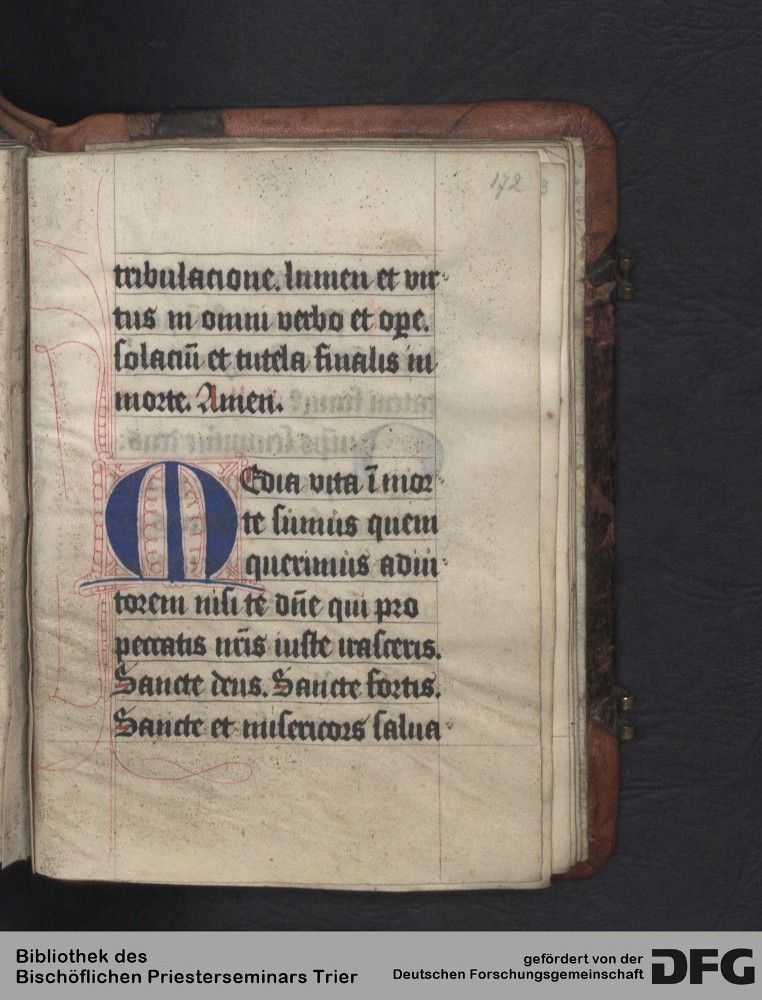 172 3
tribulacione. lumen et vir⸗
tus in omni verbo et oꝑe.
solaciū et tutela finalis in
morte. Amen.
MEdia vita ī mor⸗
te sumus quem
querimus adiu⸗
torem nisi te dn̄e qui pro
peccatis nr̄is iuste irasceris.
Sancte deus. Sancte fortis.
Sancte et misericors salua⸗
Bibliothek des
Bischöflichen Priesterseminars Trier
gefördert von der
Deutschen Forschungsgemeinschaft
DFG